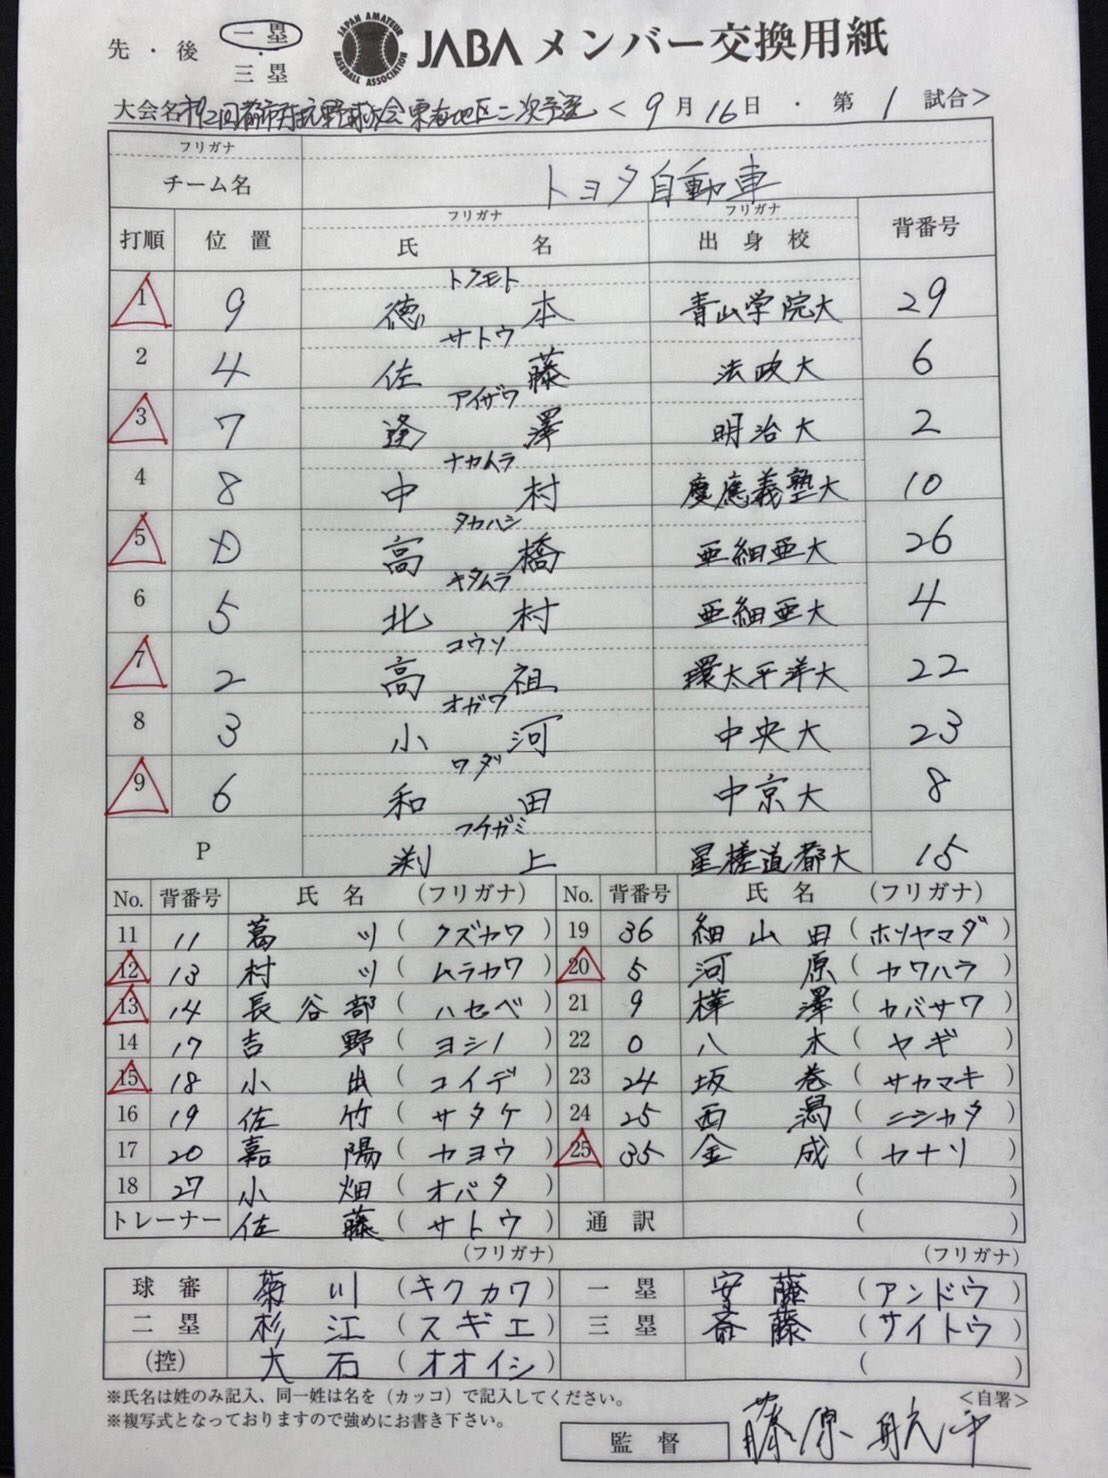 先・後 一塁・三塁 JAPAN AMATEUR BASEBALL ASSOCIATION JABA メンバー交換用紙
大会名 第92回都市対抗野球大会東海地区二次予選 <9月16日・第1試合>
フリガナ
チーム名 トヨタ自動車
打順 位置 フリガナ 氏名 フリガナ 出身校 背番号
トクモト
1 9 徳本 青山学院大 29
サトウ
2 4 佐藤 法政大 6
アイザワ
3 7 逢澤 明治大 2
ナカムラ
4 8 中村 慶應義塾大 10
タカハシ
5 D 高橋 亜細亜大 26
キタムラ
6 5 北村 亜細亜大 4
コウソ
7 2 高祖 環太平洋大 22
オガワ
8 3 小河 中央大 23
ワダ
9 6 和田 中京大 8
フチガミ
P 渕上 星槎道都大 15
No. 背番号 氏名 (フリガナ) No. 背番号 氏名 (フリガナ)
11 11 葛川 (クズカワ) 19 36 細山田 (ホソヤマダ)
12 13 村川 (ムラカワ) 20 5 河原 (カワハラ)
13 14 長谷部 (ハセベ) 21 9 樺澤 (カバサワ)
14 17 吉野 (ヨシノ) 22 0 八木 (ヤギ)
15 18 小出 (コイデ) 23 24 坂巻 (サカマキ)
16 19 佐竹 (サタケ) 24 25 西潟 (ニシカタ)
17 20 嘉陽 (カヨウ) 25 35 金成 (カナリ)
18 27 小畑 (オバタ) ( )
トレーナー 佐藤 (サトウ) 通訳 ( )
(フリガナ) (フリガナ)
球審 菊川 (キクカワ) 一塁 安藤 (アンドウ)
二塁 杉江 (スギエ) 三塁 斎藤 (サイトウ)
(控) 大石 (オオイシ) ( )
※氏名は姓のみ記入、同一姓は名を(カッコ)で記入してください。 <自署>
※複写式となっておりますので強めにお書き下さい。
監督 藤原航平